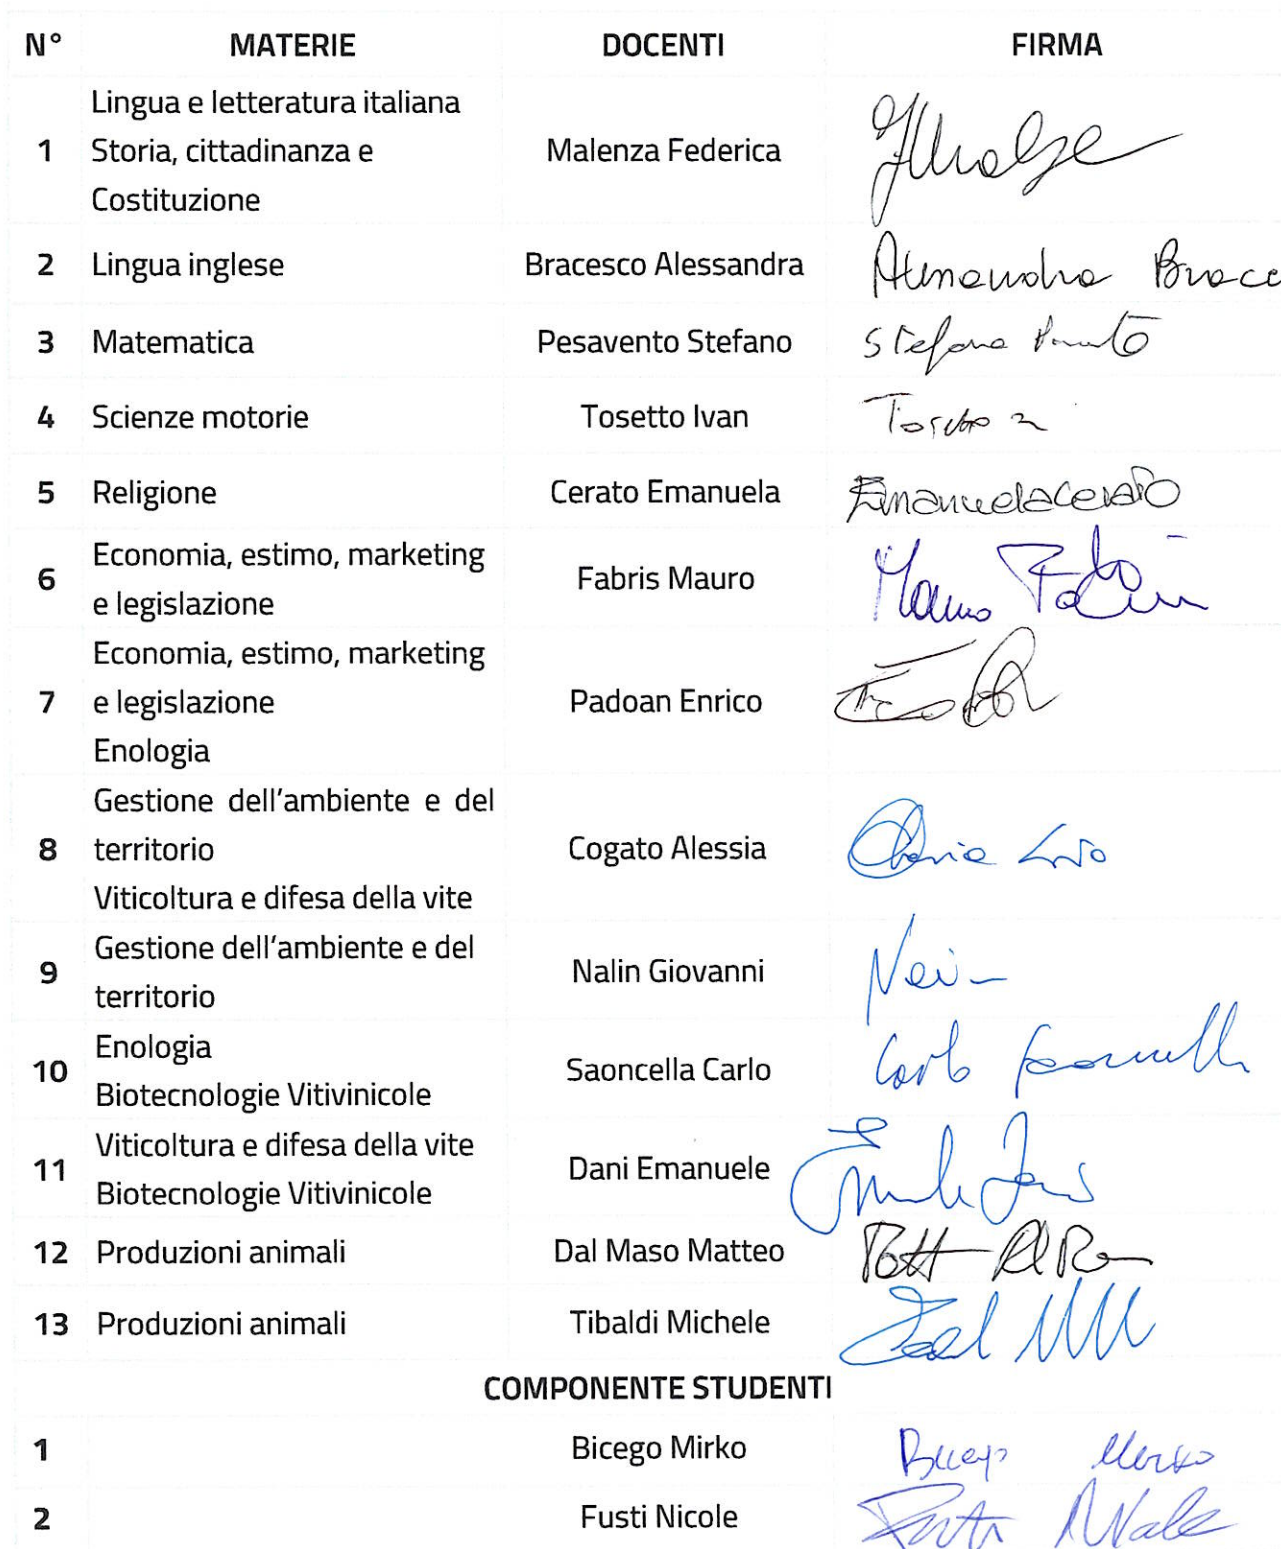 N° MATERIE DOCENTI FIRMA
Lingua e letteratura italiana
1 Storia, cittadinanza e Malenza Federica
Costituzione
2 Lingua inglese Bracesco Alessandra Alessandra Brace
3 Matematica Pesavento Stefano Stefano
4 Scienze motorie Tosetto Ivan Tosetto
5 Religione Cerato Emanuela Emanuela Cerato
Economia, estimo, marketing
6 e legislazione Fabris Mauro Mauro Fabris
Economia, estimo, marketing
7 e legislazione Padoan Enrico
Enologia
Gestione dell'ambiente e del
8 territorio Cogato Alessia
Viticoltura e difesa della vite
Gestione dell'ambiente e del
9 territorio Nalin Giovanni
Enologia
10 Biotecnologie Vitivinicole Saoncella Carlo Carlo Saoncella
Viticoltura e difesa della vite
11 Biotecnologie Vitivinicole Dani Emanuele
12 Produzioni animali Dal Maso Matteo
13 Produzioni animali Tibaldi Michele
COMPONENTE STUDENTI
1 Bicego Mirko Bicego Mirko
2 Fusti Nicole Fusti Nicole